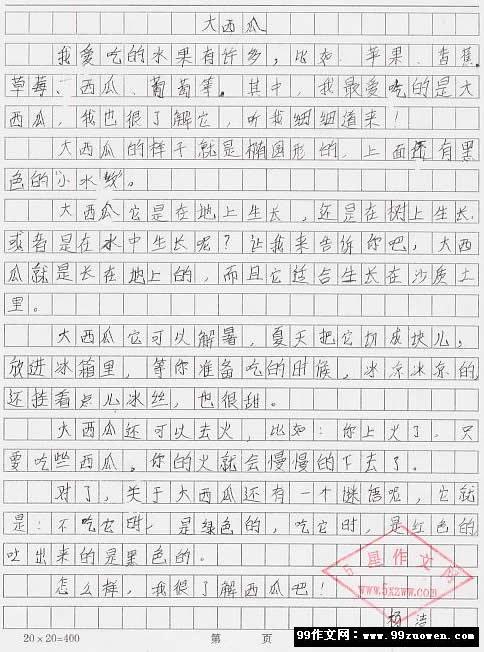 大西瓜
我爱吃的水果有许多，比如：苹果、香蕉、
草莓、西瓜、葡萄等。其中，我最爱吃的是大
西瓜，我也很了解它，听我细细道来！
大西瓜的样子就是椭圆形的，上面还有黑
色的“小水纹”。
大西瓜它是在地上生长，还是在树上生长，
或者是在水中生长呢？让我来告诉你吧，大西
瓜就是长在地上的，而且它适合生长在沙质土
里。
大西瓜它可以解暑，夏天把它切成块儿，
放进冰箱里，等你准备吃的时候，冰凉冰凉的，
还挂着点儿冰丝，也很甜。
大西瓜还可以去火，比如：你上火了，只
要吃些西瓜，你的火就会慢慢的下去了。
对了，关于大西瓜还有一个谜语呢，它就
是：不吃它时，是绿色的，吃它时，是红色的，
吐出来的是黑色的。
怎么样，我很了解西瓜吧！
杨洁
5星作文网
www.5xzww.com
20×20=400 第 页
99作文网：www.99zuowen.com